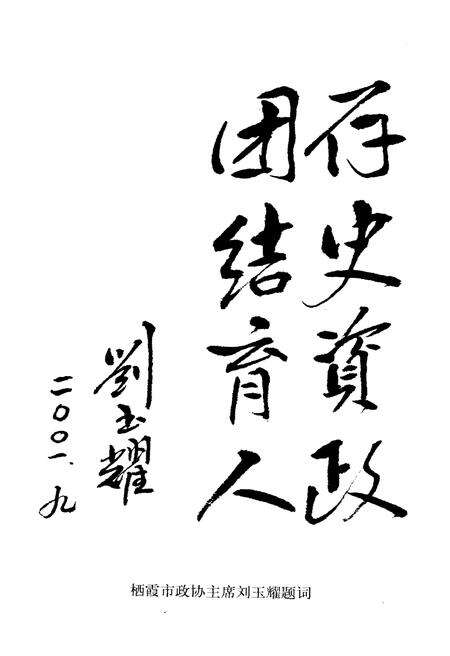 存史資政
团结育人
劉玉耀
二〇〇一、九
栖霞市政协主席刘玉耀题词